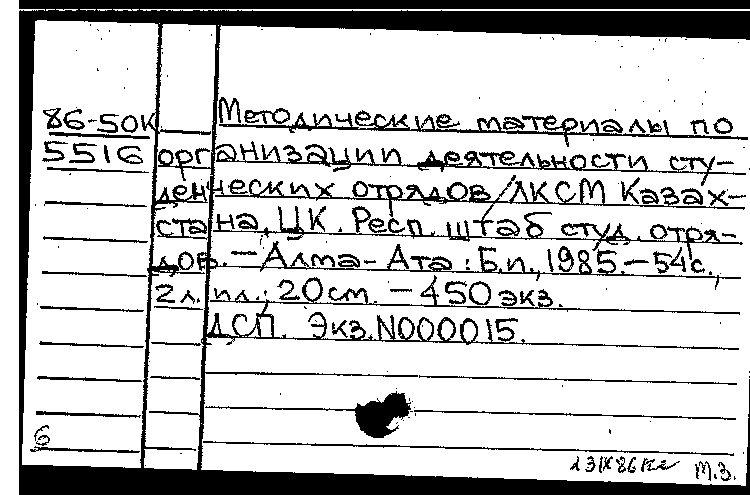 86-50К Методические материалы по
5516 организации деятельности сту-
денческих отрядов/ЛКСМ Казах-
стана, ЦК. Респ. штаб студ. отря-
дов. – Алма-Ата : Б.и., 1985. – 54 с.,
2 л. пл.; 20 см. – 450 экз.
ДСП. Экз. N000015.
6
М.З.